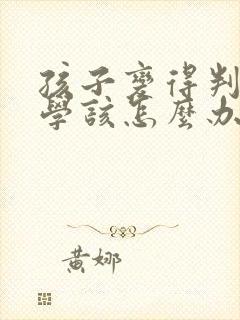 孩子變得判
學該怎麼办
黄娜